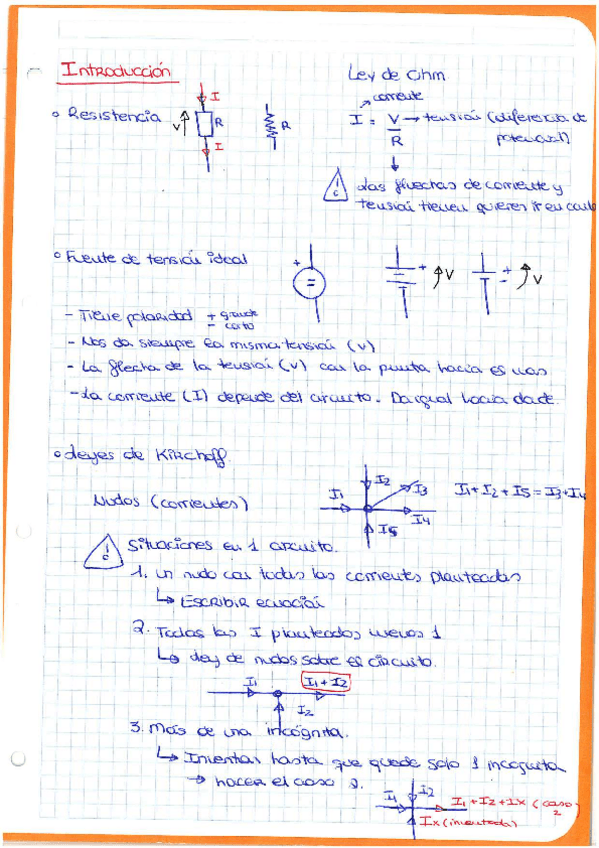 Introducción
Ley de Ohm
corriente
○ Resistencia V I R I R
I = V/R → tensión (diferencia de
potencial)
Las flechas de corriente y
tensión tienen
○ Fuente de tensión ideal + = + V + - V
- Tiene polaridad + grande
- corto
- Nos da siempre la misma tensión (V)
- La flecha de la tensión (V) con la punta hacia el más
- La corriente (I) depende del circuito. Da igual hacia donde
○ Leyes de Kirchoff
Nudos (corrientes)
I1 I2 I3 I4 I5
I1+I2+I5=I3+I4
Situaciones en 1 circuito.
1. Un nudo con todas las corrientes planteadas
↳ Escribir ecuación
2. Todas las I planteadas menos 1
↳ Ley de nudos sobre el circuito.
I1 I1+I2
I2
3. Más de una incógnita.
↳ Inventar hasta que quede solo 1 incognita
→ hacer el caso 2.
I1 I2 I1+I2+Ix (caso 2)
Ix (inventada)